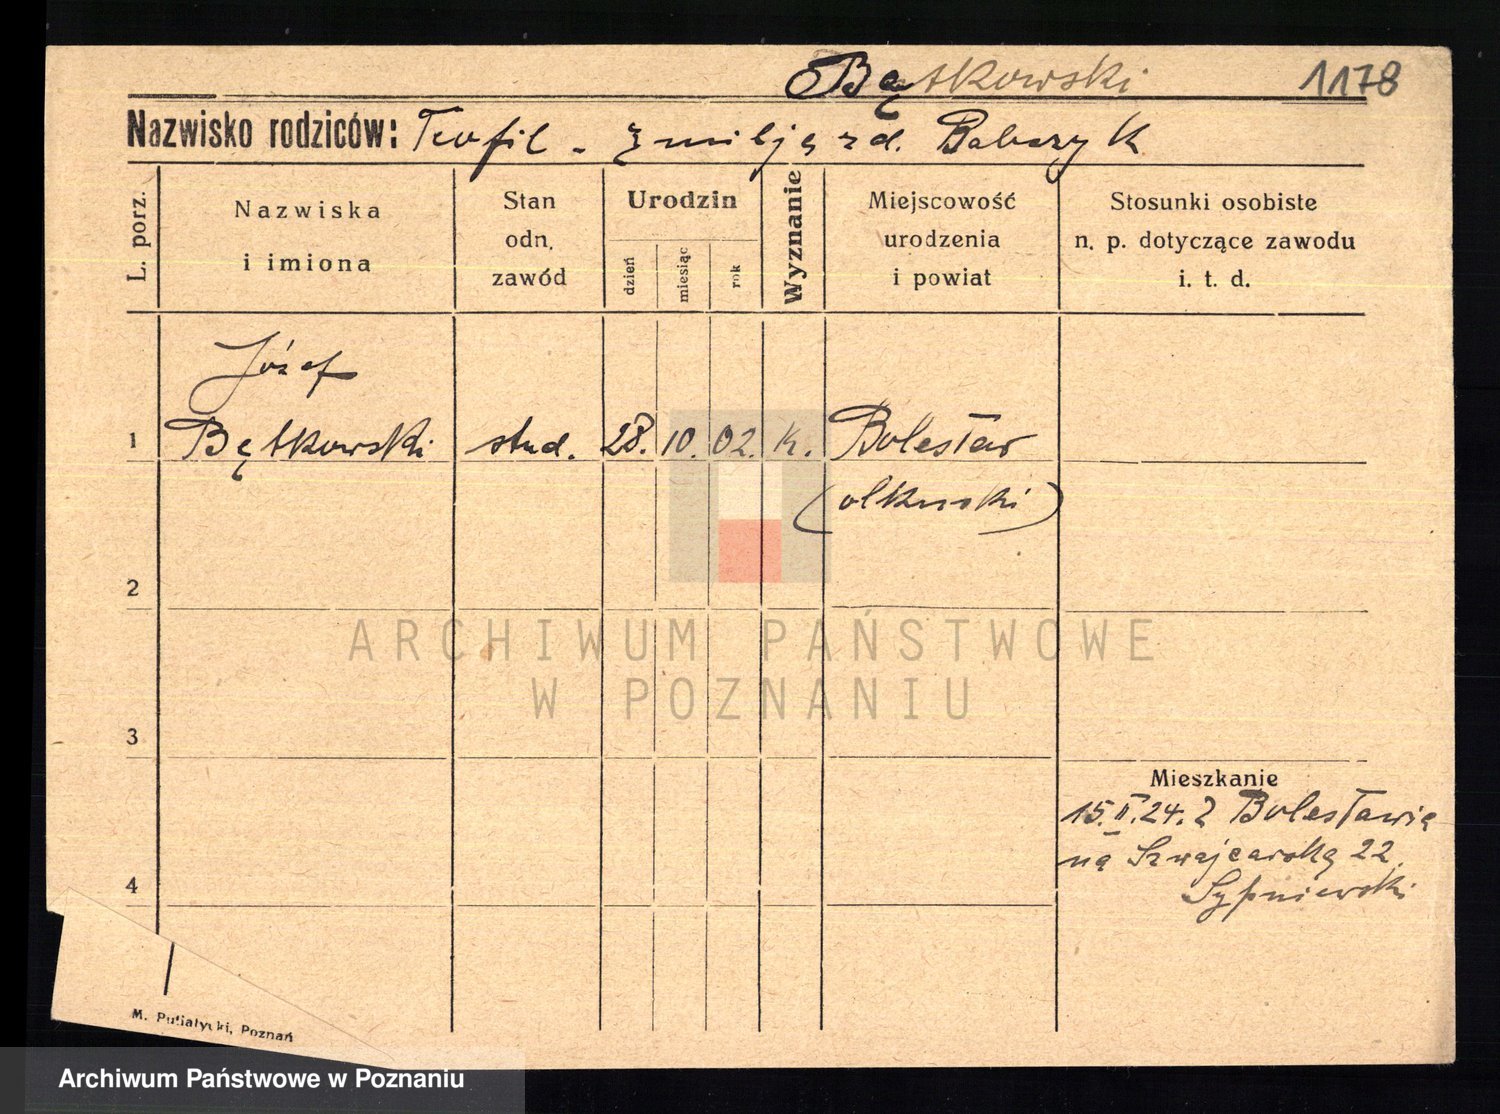 Bątkowski 1178
Nazwisko rodziców: Teofil - Emilja zd. Babczyk
L. porz.
Nazwiska
i imiona
Stan
odn.
zawód
Urodzin
dzień
miesiąc
rok
Wyznanie
Miejscowość
urodzenia
i powiat
Stosunki osobiste
n. p. dotyczące zawodu
i. t. d.
Józef
1 Bątkowski stud. 28. 10. 02. k. Bolesław
(olkuski)
2
ARCHIWUM PAŃSTWOWE
W POZNANIU
3
Mieszkanie
15.II.24. z Bolesławia
na Szwajcarską 22.
Sypniewski
4
M. Putiatycki, Poznań
Archiwum Państwowe w Poznaniu